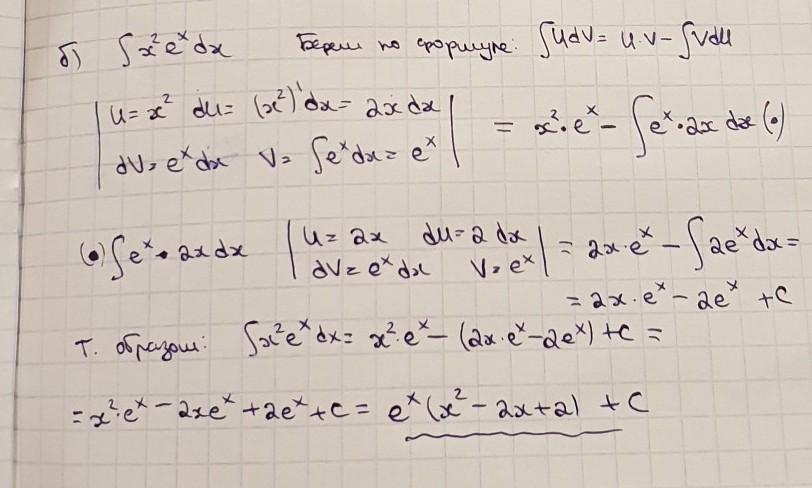 б) ∫x²eˣdx Берем по формуле: ∫UdV= U·V−∫VdU
| U=x² dU= (x²)'dx= 2x dx | = x²·eˣ− ∫eˣ·2x dx (•)
| dV=eˣdx V= ∫eˣdx= eˣ |
(•)∫eˣ•2xdx | U=2x dU=2 dx | = 2x·eˣ−∫2eˣdx=
| dV=eˣdx V=eˣ |
=2x·eˣ−2eˣ +C
Т. образом: ∫x²eˣdx= x²·eˣ− (2x·eˣ−2eˣ)+C =
=x²·eˣ−2xeˣ+2eˣ+C= eˣ(x²−2x+2) +C